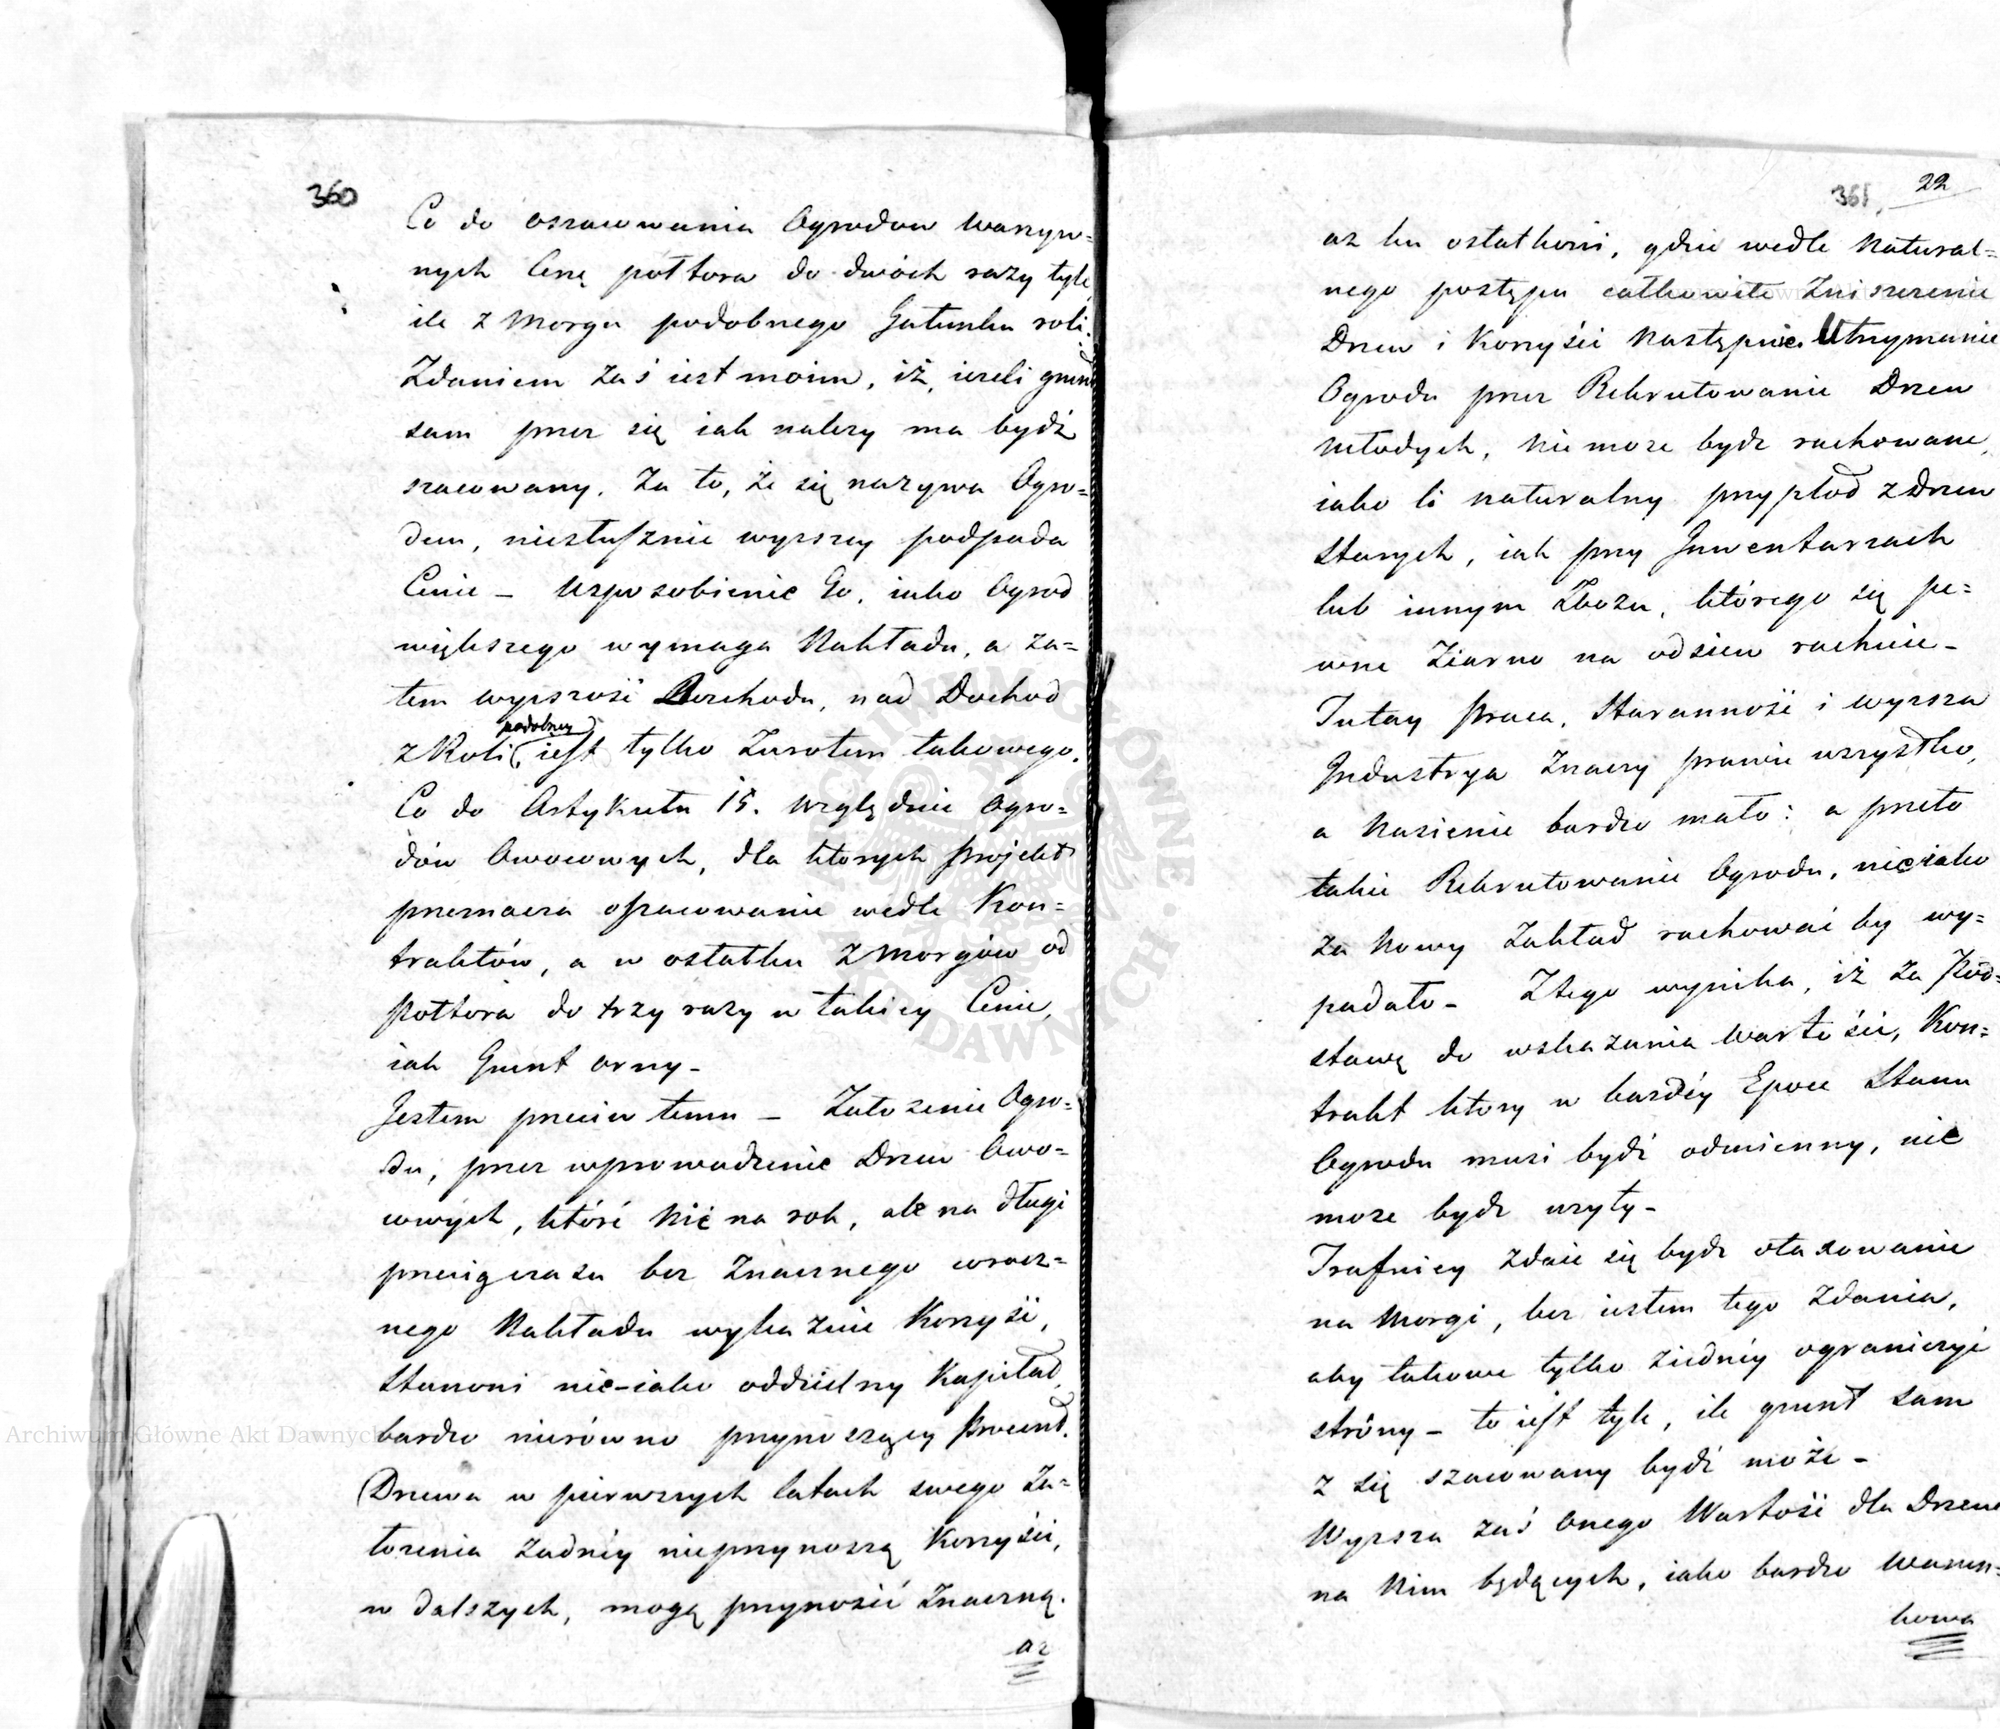 360
Co do oszacowania Ogrodow warzyw=
nych Cenę półtora do dwóch razy tyle,
ile z Morgu podobnego Gatunku roli.
Zdaniem zaś iest moim, iż, ieżeli grunt
sam przez się iak należy ma bydź
szacowany, Za to, że się nazywa Ogro=
dem, niesłusznie wyższey podpada
Cenie – Usposobienie Go, iako Ogrod
większego wymaga Nakładu, a za=
tem wyższość Rozchodu, nad Dochod
podobney
z Roli iest tylko Zwrotem takowego.
Co do Artykułu 15. względnie Ogro=
dów Owocowych, dla ktorych Projekt
przeznacza oszacowanie wedle Kon=
traktów, a w ostatku z Morgów od
Półtora do trzy razy w takiey Cenie,
iak Grunt orny –
Jestem przeciw temu – Założenie Ogro=
du, przez wprowadzenie Drzew Owo=
cowych, któré nié na rok, ale na długi
przeciąg czasu bez Znacznego wrocz=
nego Nakładu wykazuie Korzyść,
Stanowi nie-iako oddzielny Kapitał,
bardzo nierówno przynoszący Procent.
Drzewa w pierwszych latach swego Za=
łożenia żadnéy nieprzynoszą Korzyści,
w dalszych, mogą przynosić Znaczną.
az
361.
22
az ku ostatkowi, gdzie wedle Natural=
nego postępu całkowite Zniszczenie
Drzew i Korzyści następuie. Utrzymanie
Ogrodu przez Rekrutowanie Drzew
Młodych, nie może bydz rachowane,
iako li naturalny przypłod z Drzew
Starych, iak przy Inwentarzach
lub innym Zbożu, którego się pe=
wne Ziarno na odsiew rachuie –
Tutay Praca, Staranność i wyższa
Industrya Znaczy prawie wszystko,
a Nasienie bardzo mało: a przeto
takie Rekrutowanie Ogrodu, nieiako
za Nowy Zakład rachować by wy=
padało – Ztego wynika, iż za Pod=
stawę do wskazania Wartości, Kon=
trakt ktory w każdéy Epoce Stanu
Ogrodu musi bydź odmienny, nié
może bydz użyty –
Trafniey zdaie się bydz otaxowanie
na Morgi, lecz iestem tego Zdania,
aby takowe tylko ziednéy ograniczyć
stróny – to iest tyle, ile grunt sam
z się szacowany bydź może –
Wyższa zaś Onego Wartość dla Drzew
na Nim będących, iako bardzo Warun=
kowa
Archiwum Główne Akt Dawnych